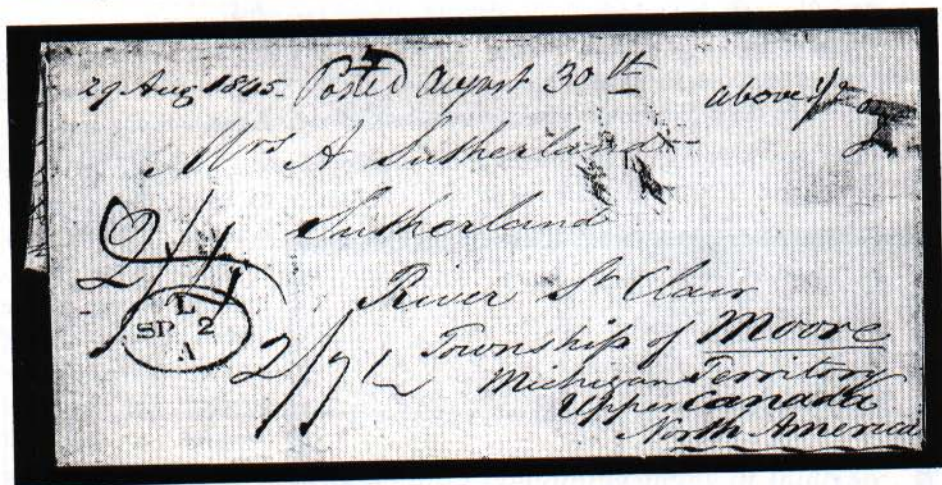 29 Aug 1845. Posted August 30th above 1/2 oz
Mrs A Sutherland
Sutherland
River St Clair
Township of Moore
Michigan Territory
Upper Canada
North America
L
SP 2
A